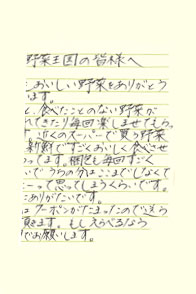 野菜王国の皆様へ
おいしい野菜をありがとう
ます。
と、食べたことのない野菜が
れてきたり毎回楽しませてもらっ
す 近くのスーパーで買う野菜
新鮮ですごくおいしく食べさせ
ってます。梱包も毎回すごく
いでうちの分はここまでしなくて
ーって思ってしまうくらいです。
にありがたいです。
はクーポンがたまったので送ら
頂きます。もしえらべるなら
でお願いします。